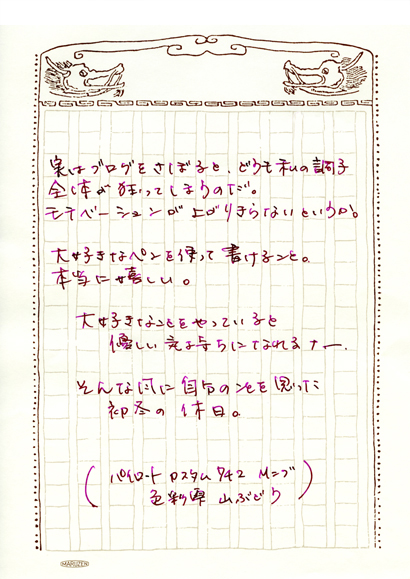 実はブログをさぼると、どうも私の調子
全体が狂ってしまうのだ。
モチベーションが上がりきらないというか。
大好きなペンを使って書けること。
本当に嬉しい。
大好きなことをやっていると
優しい気持ちになれるナー。
そんな風に自分の心を思った
初冬の休日。
(パイロット カスタム742 Mニブ
色彩雫 山ぶどう)
MARUZEN